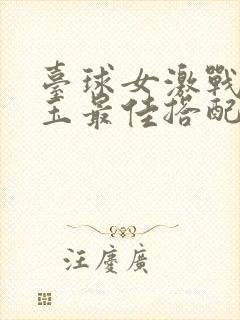 臺球女激戰
王最佳搭配
汪慶廣